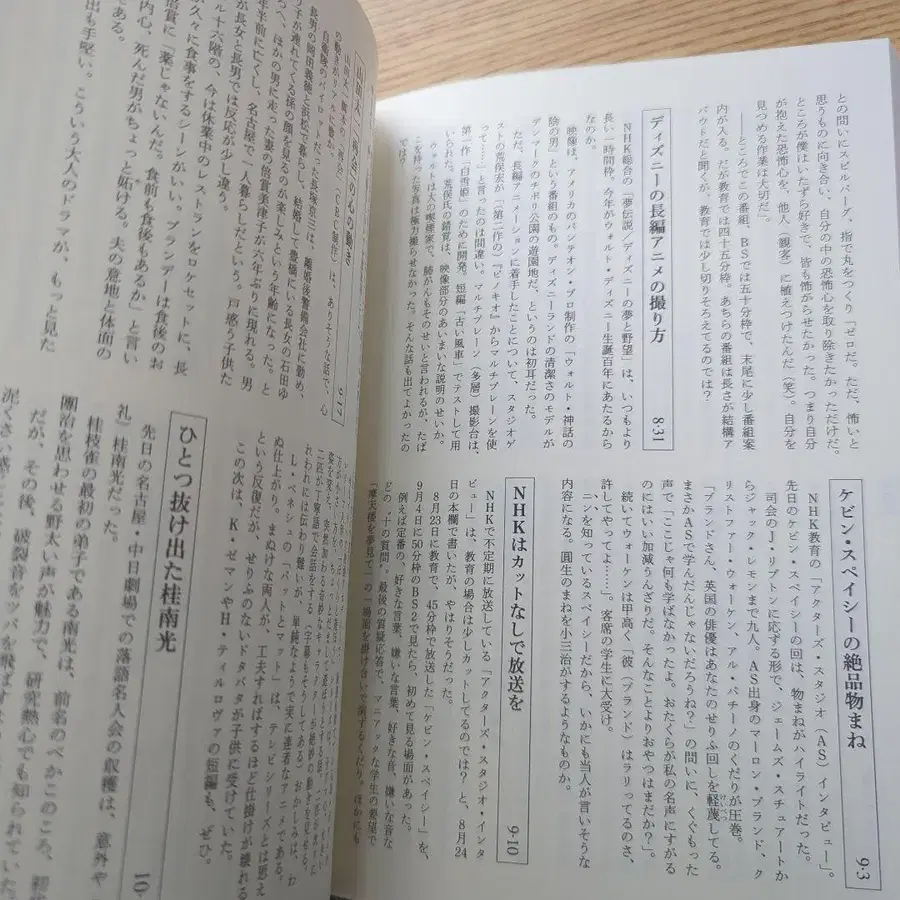 との問いにスピルバーグ、指で丸をつくり「ゼロだ。ただ、怖いと
思うものに向き合い、自分の中の恐怖心を取り除きたかっただけだ。
ところが僕はいたずら好きで、皆も怖がらせたかった。つまり自分
が抱えた恐怖心を、他人（観客）に植えつけたんだ（笑）。自分を
見つめる作業は大切だ」。
――ところでこの番組、BSでは五十分枠で、末尾に少し番組案
内が入る。だが教育では四十五分枠。あちらの番組は長さが結構ア
バウトだと聞くが、教育では少し切りそろえてるのでは？
ディズニーの長編アニメの撮り方
8・31
NHK総合の「夢伝説／ディズニーの夢と野望」は、いつもより
長い一時間枠。今年がウォルト・ディズニー生誕百年にあたるから
なのか。
映像は、アメリカのパンテオン・プロ制作の「ウォルト・神話の
陰の男」という番組のもの。ディズニーランドの清潔さのモデルが
デンマークのチボリ公園の遊園地だ、というのは初耳だった。
ただ、長編アニメーションに着手したことについて、スタジオゲ
ストの荒俣宏が「（第二作の）『ピノキオ』からマルチプレーンを使
って……」と言ったのは間違い。マルチプレーン（多層）撮影台は、
第一作『白雪姫』のために開発。短編「古い風車」でテストして用
いられた。荒俣氏の錯覚は、映像部分のあいまいな説明のせいか。
ウォルトは大の喫煙家で、肺がんもそのせいと言われるが、たば
こを持った写真は極力撮らせなかった。そんな話も出てよかったの
では？
ケビン・スペイシーの絶品物まね
9・3
NHK教育の「アクターズ・スタジオ（AS）インタビュー」。
先日のケビン・スペイシーの回は、物まねがハイライトだった。
司会のJ・リプトンに応ずる形で、ジェームズ・スチュアートか
らジャック・レモンまで九人。AS出身のマーロン・ブランド、ク
リストファー・ウォーケン、アル・パチーノのくだりが圧巻。
「ブランドさん、英国の俳優はあなたのせりふ回しを軽蔑してる。
けいべつ
まさかASで学んだんじゃないだろうね？」の問いに、くぐもった
声で「ここじゃ何も学ばなかったよ。おたくらが私の名声にすがる
のにはいい加減うんざりだ。そんなことよりおやつはまだか？」。
続いてウォーケンは甲高く「彼（ブランド）はラリってるのさ、
許してやってよ……」。客席の学生に大受け。
ニンを知っているスペイシーだから、いかにも当人が言いそうな
内容になる。圓生のまねを小三治がするようなものか。
NHKはカットなしで放送を
9・10
NHKで不定期に放送している「アクターズ・スタジオ・インタ
ビュー」は、教育の場合は少しカットしてるのでは？と、8月24
日の本欄で書いたが、やはりそうだった。
8月23日に教育で、45分枠で放送した「ケビン・スペイシー」を、
9月4日に50分枠のBS2で見たら、初めて見る場面があった。
例えば定番の、好きな言葉、嫌いな言葉、好きな音、嫌いな音な
どの〝十の質問〟。最後の質疑応答で、マニアックな学生の要望で
「摩天楼を夢見て」の一場面を掛け合いで演ずるくだり。ほかにも
山田太一「再会」の心の動き
9・17
山田太一脚本の「再会」（CBC制作）は、ありそうな話で、心
の動きがリアルに動く
自衛隊のパイロットだった長塚京三は、離婚後警備会社に勤め、
長男の岡田義徳と浜松で暮らし、結婚して豊橋にいる長女の石田ゆ
り子が連れてくる孫の顔を見るのが楽しみという年齢になった。と
ころへ、ほかの男に走った妻の倍賞美津子が六年ぶりに現れる。男
を半年前に亡くし、名古屋で一人暮らしだという。戸惑う子供た
が長女と長男では反応が少し違う。
ル十六階の、今は休業中のレストランをロケセットに、長
が久々に食事をするシーンがいい。ブランデーは食後のお
倍賞に「薬じゃないんだ。食前も食後もあるか」と言い
内心、死んだ男がちょっと妬ける。夫の意地と体面の
である。
出も手堅い。こういう大人のドラマが、もっと見た
二匹が丁寧語で会話をする（字幕もそうしてある）おかしさは、わ
れわれには伝わり難いが、単純なようで実に達者なアニメである。
L・ベネシュの「パットとマット」は、テレビシリーズとは思え
ぬ仕上がり。まぬけな両人が、工夫すればするほど仕掛けが壊れる
という反復だが、せりふのないドタバタが子供に受けていた。
この次は、K・ゼマンやH・ティルロヴァの短編も、ぜひ。
ひとつ抜け出た桂南光
10・
先日の名古屋・中日劇場での落語名人会の収穫は、意外や
礼）桂南光だった。
桂枝雀の最初の弟子である南光は、前名のべかこのころ、初
團治を思わせる野太い声が魅力で、研究熱心でも知られていた
だが、その後、破裂音をツバを飛ばす
泥くさい感じ